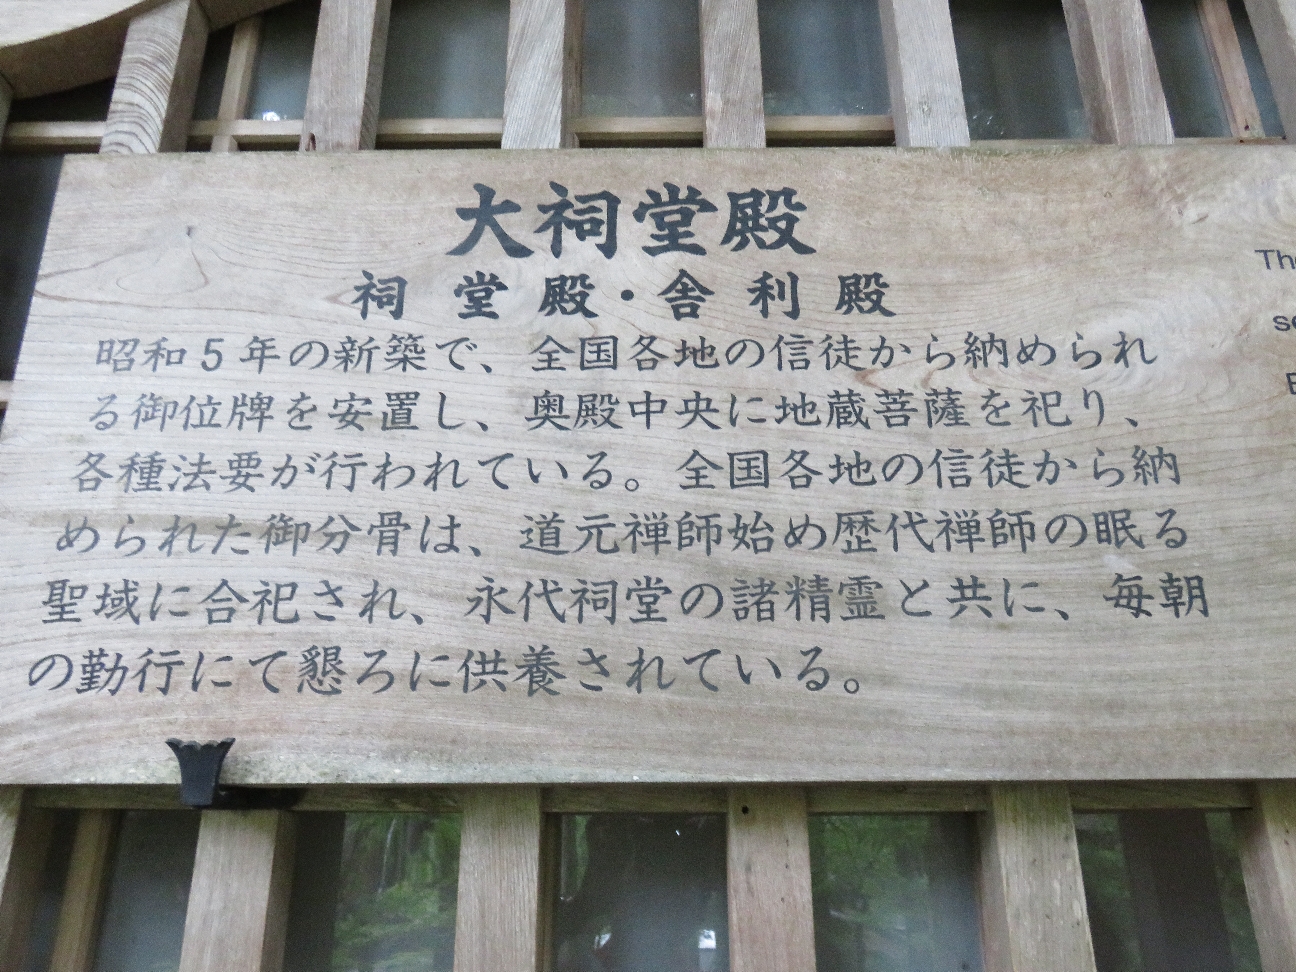 大祠堂殿
祠堂殿・舎利殿
昭和5年の新築で、全国各地の信徒から納められ
る御位牌を安置し、奥殿中央に地蔵菩薩を祀り、
各種法要が行われている。全国各地の信徒から納
められた御分骨は、道元禅師始め歴代禅師の眠る
聖域に合祀され、永代祠堂の諸精霊と共に、毎朝
の勤行にて懇ろに供養されている。